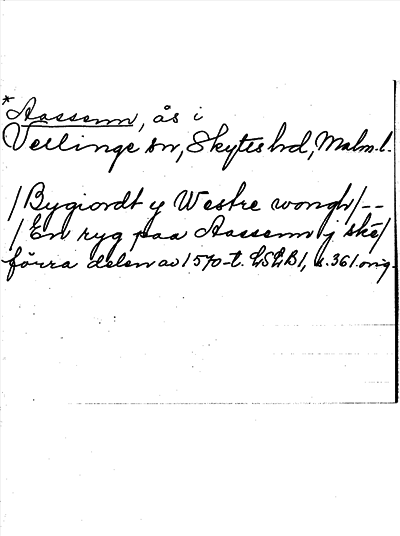 *Aassenn, ås i
Vellinge sn, Skytts hd, Malm. l.
/Bygiordt y Westre wongh/--
/En ryg paa Aassenn j ske/
förra delen av 1570-t. LSLB1, s. 361. orig.